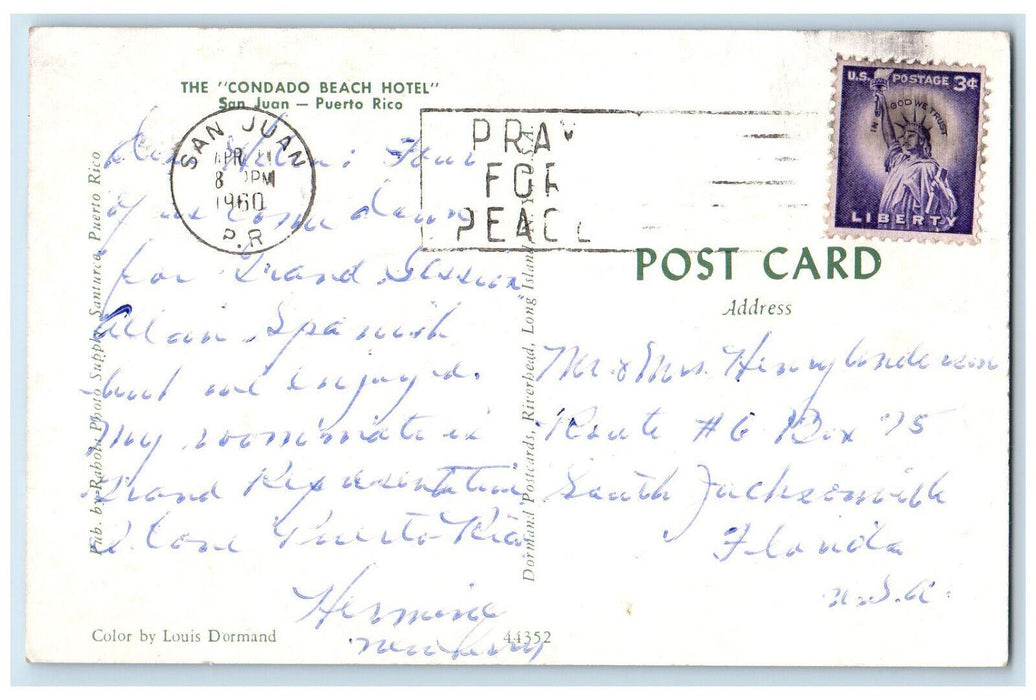 THE "CONDADO BEACH HOTEL"
San Juan — Puerto Rico
SAN JUAN
APR
8 PM
1960
P.R
PRAY
FOR
PEACE
U.S. POSTAGE 3¢
IN GOD WE TRUST
LIBERTY
Dear Four
of us came down
for Grand Session
all in Spanish
but we enjoyed.
My roommate is
Grand Representative
Puerto Rico
Hermine
Newberry
POST CARD
Address
Mr. & Mrs. Henry Anderson
Route #6 Box 75
South Jacksonville
Florida
U.S.A.
Pub. by Rahola Photo Supply, Santurce, Puerto Rico
Dormand Postcards, Riverhead, Long Island
Color by Louis Dormand
44352